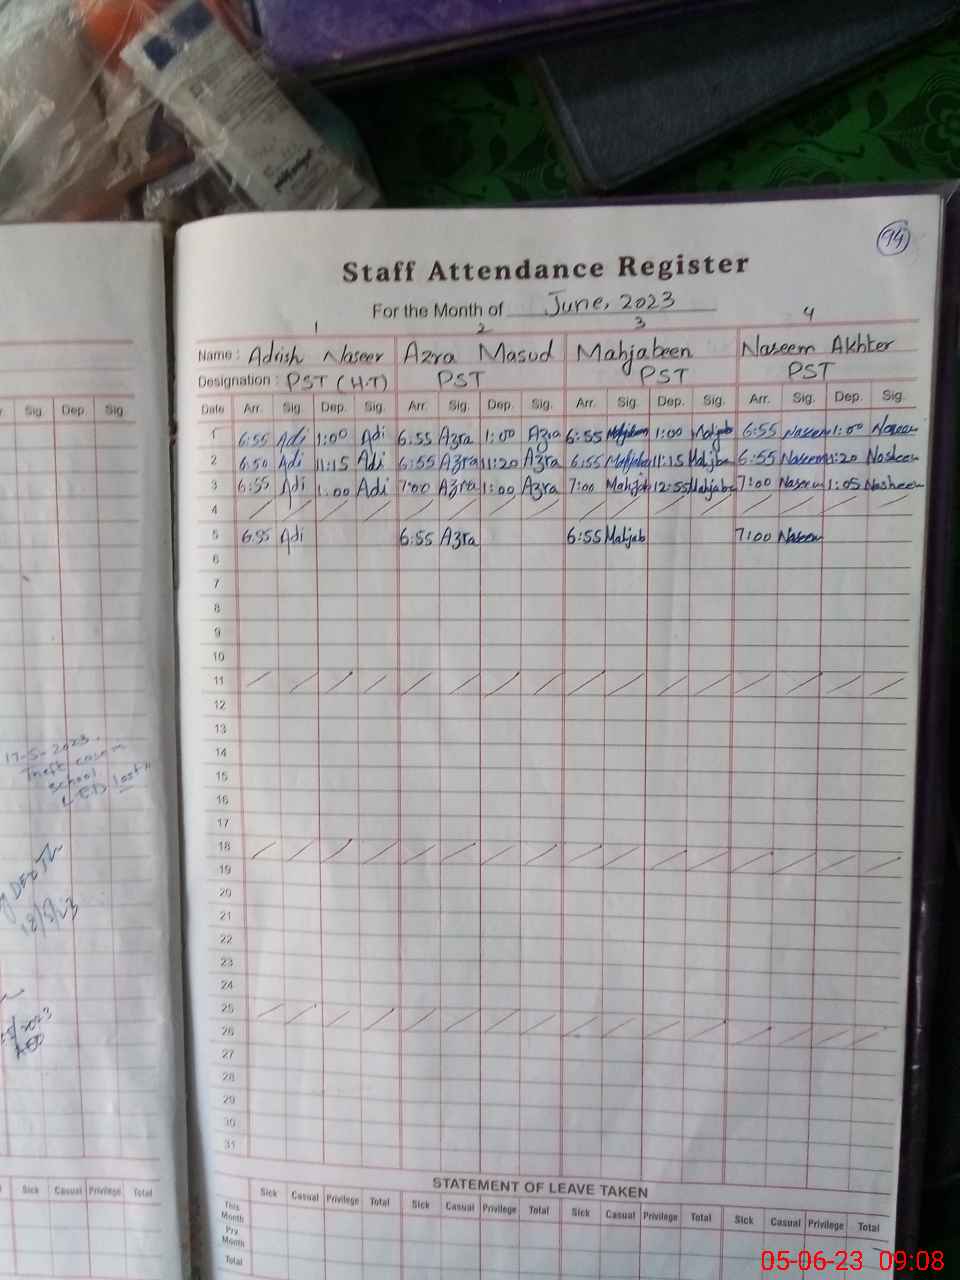 94
Staff Attendance Register
For the Month of June, 2023
1 2 3 4
Name : Adrish Naseer Azra Masud Mahjabeen Naseem Akhter
Designation : PST (H.T) PST PST PST
Date Arr. Sig. Dep. Sig. Arr. Sig. Dep. Sig. Arr. Sig. Dep. Sig. Arr. Sig. Dep. Sig.
1 6:55 Adi 1:00 Adi 6:55 Azra 1:00 Azra 6:55 1:00 Majab 6:55 Naseem 1:00 Naseem
2 6:50 Adi 11:15 Adi 6:55 Azra 11:20 Azra 6:55 11:15 6:55 Naseem 11:20
3 6:55 Adi 1:00 Adi 7:00 Azra 1:00 Azra 7:00 Mahjab 12:55 Mahjabe 7:00 Naseem 1:05 Nasheem
4
5 6:55 Adi 6:55 Azra 6:55 Mahjab 7:00 Naseem
6
7
8
9
10
11
12
13
14
15
16
17
18
19
20
21
22
23
24
25
26
27
28
29
30
31
STATEMENT OF LEAVE TAKEN
Sick Casual Privilege Total Sick Casual Privilege Total Sick Casual Privilege Total Sick Casual Privilege Total
This Month
Prv Month
Total
Sig. Dep. Sig.
17-5-2023.
Theft case in
school
LED lost"
18/5/23
/2023
AEO
Sick Casual Privilege Total
05-06-23 09:08